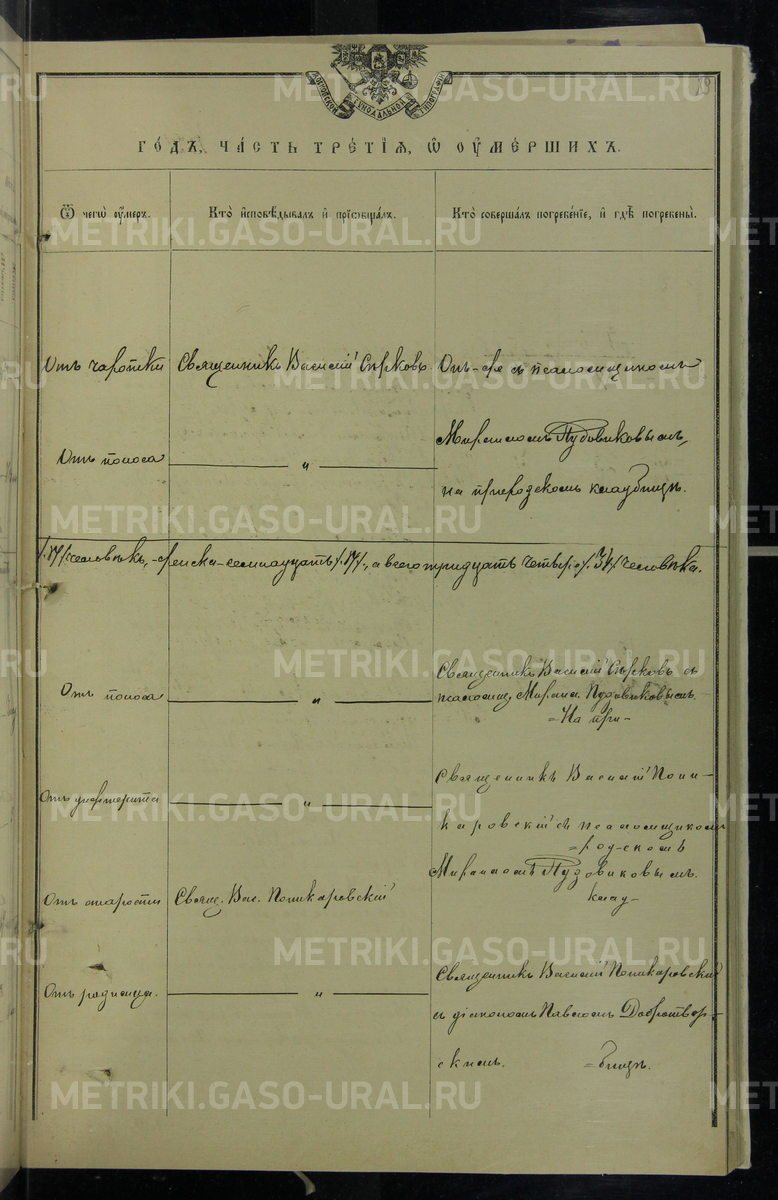 МОСКОВСКОЙ СѴНОДАЛЬНОЙ ТИПОГРАФІИ
ГО́ДЪ, ЧА́СТЬ ТРЕ́ТІѦ, Ѡ҆ ОУ҆МЕ́РШИХЪ.
Ѿ чегѡ̀ оу҆́меръ.
Кто̀ и҆сповѣ́дывалъ и҆ прїѡбща́лъ.
Кто̀ соверша́лъ погребе́нїе, и҆ гдѣ̀ погребены̀.
Отъ чахотки
Священникъ Василій Сырковъ
Онъ-же съ псаломщикомъ
Отъ поноса
"
Миропомъ Пудовиковымъ,
на приходскомъ кладбищѣ.
/17/ человѣкъ, женска-семнадцать /17/, а всего тридцать четыре /34/ человѣка.
Отъ поноса
"
Священникъ Василій Сырковъ съ
псаломщ. Пудовиковымъ.
=На при-
Отъ дифтерита
"
Священникъ Василій Поли-
каровскій съ псаломщикомъ
=ход-скомъ
Пудовиковымъ.
Отъ старости
Свящ. Вас. Поликаровскій
клад-
Отъ родимца.
"
Священникъ Василій Поликаровскій
съ діакономъ Павломъ Добротвор-
скимъ.
=бищѣ.
METRIKI.GASO-URAL.RU